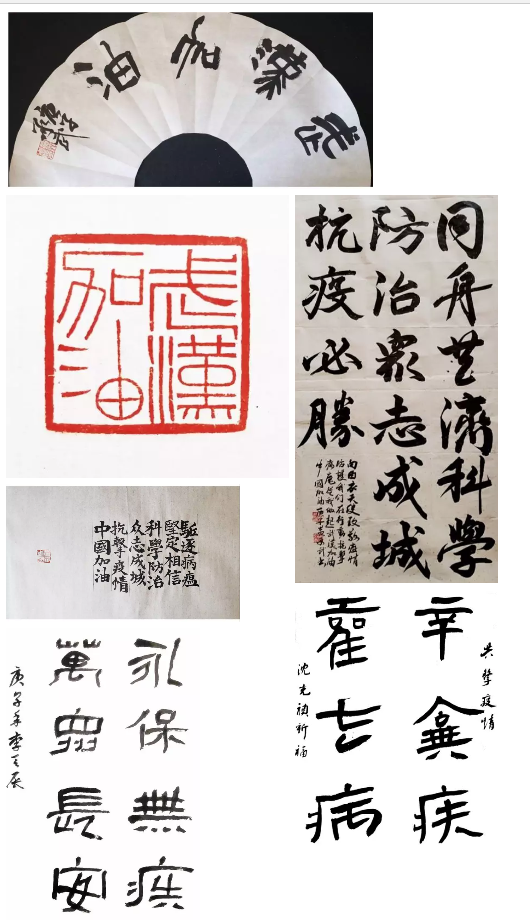 武漢加油
武漢
加油
同舟共濟科學
防治衆志成城
抗疫必勝
驅逐病瘟
堅定相信
科學防治
众志成城
抗擊疫情
中國加油
共擊疫情
辛棄疾
霍去病
祈福
永保無疾
萬眾長安
庚子年李